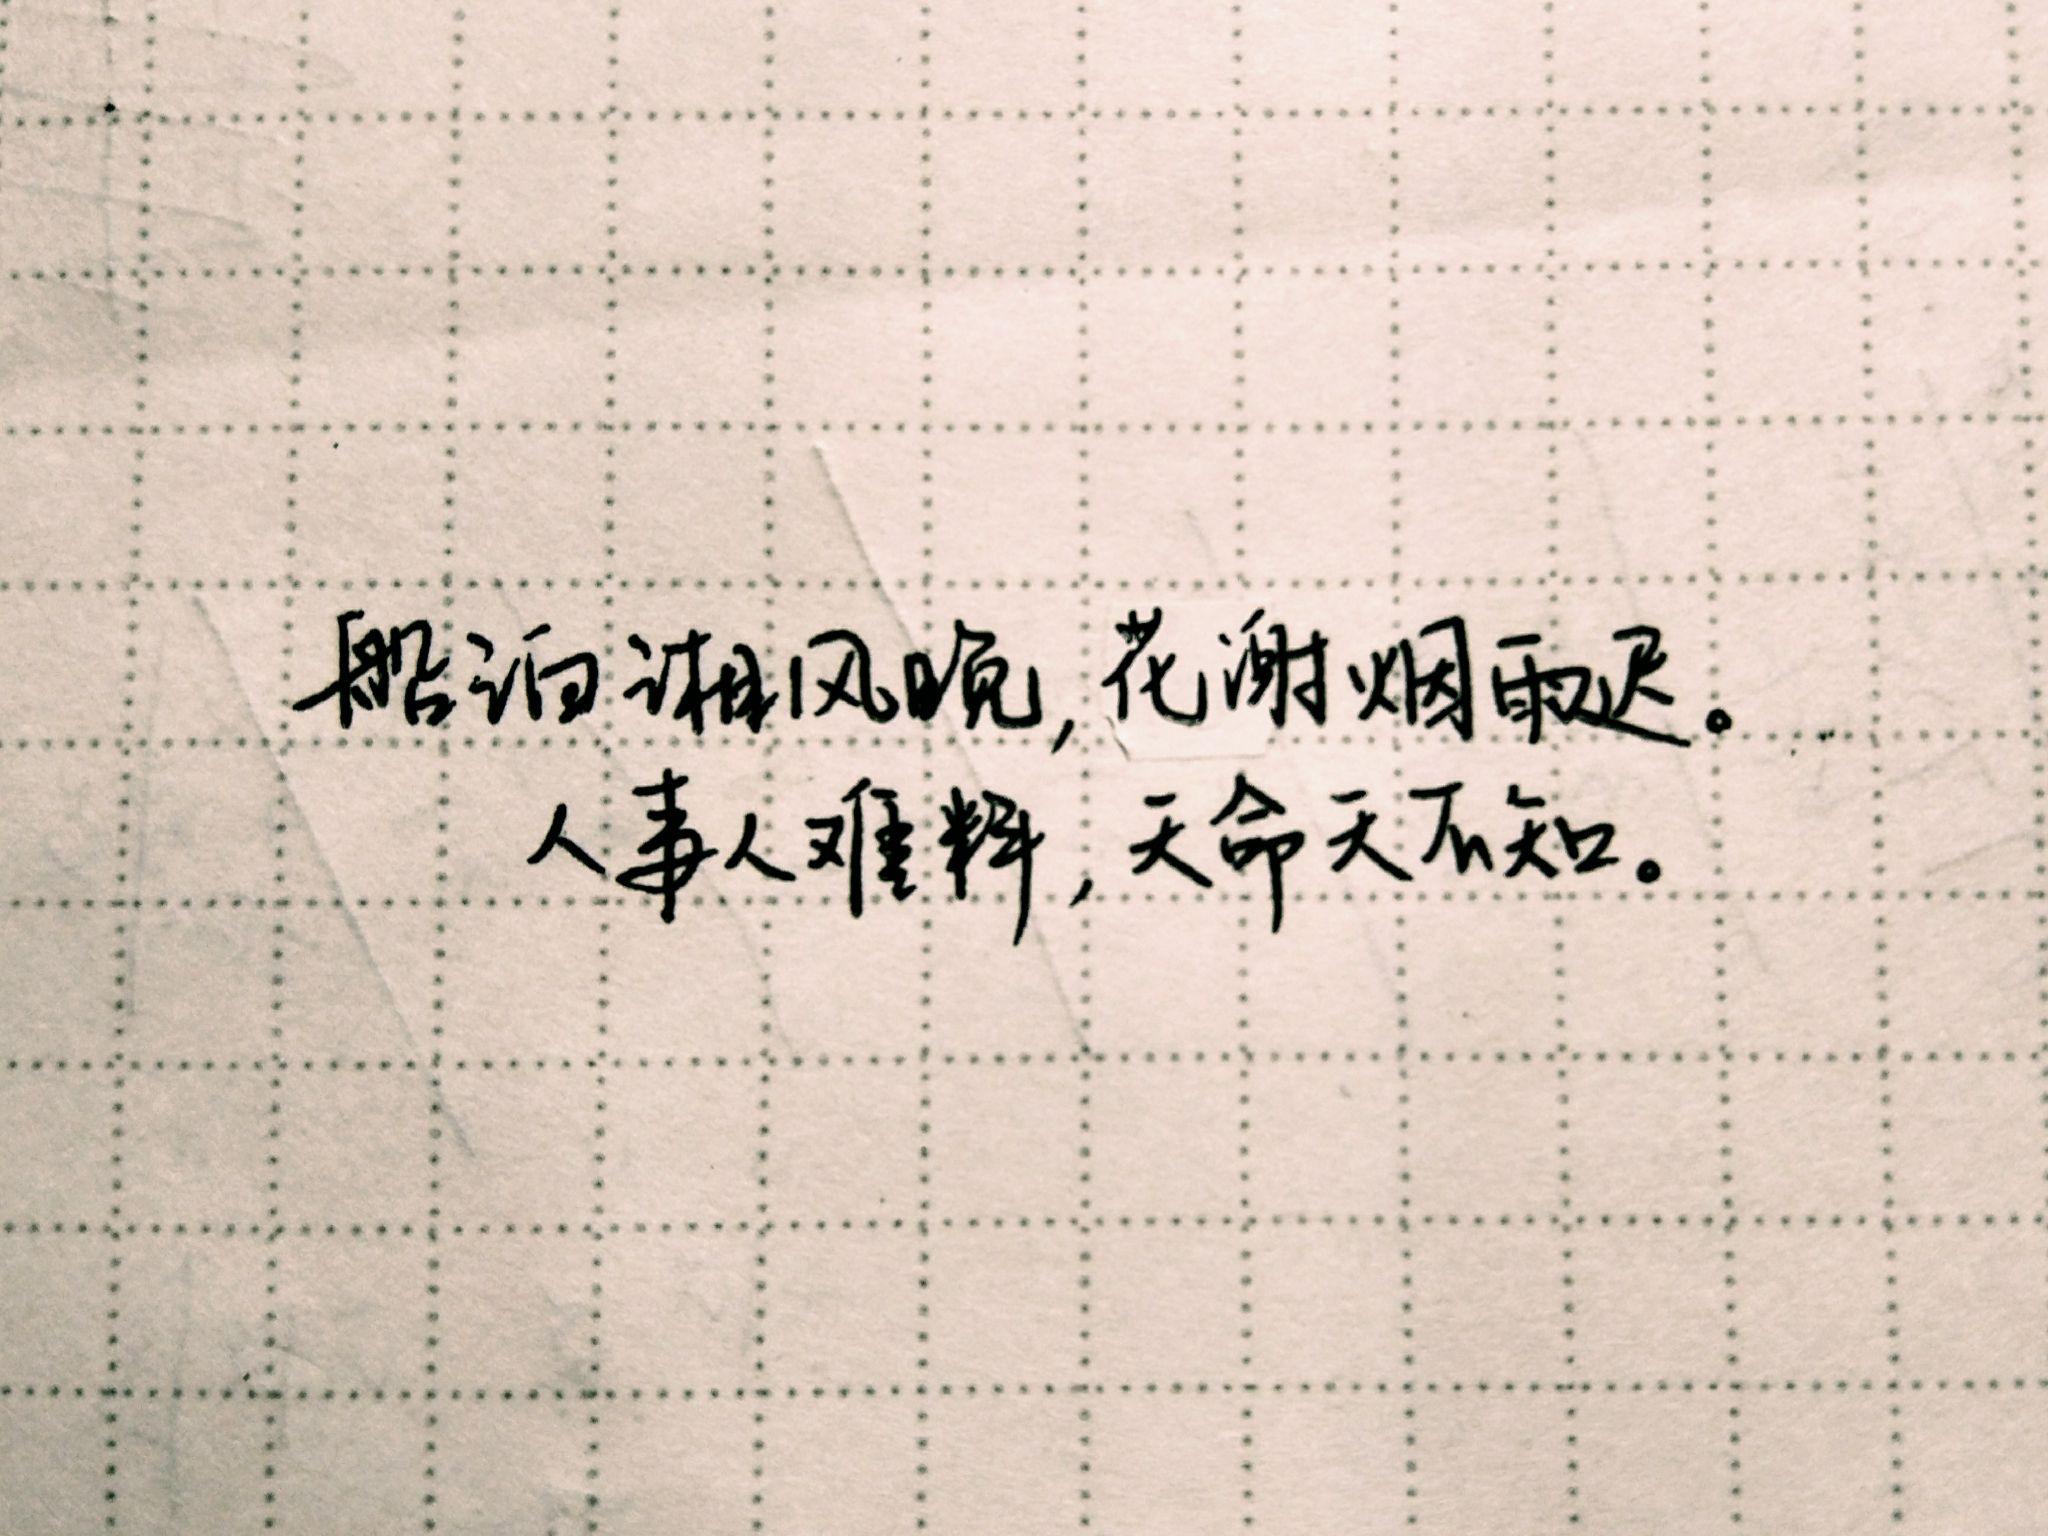 船泊湘风晚,花谢烟雨迟。
人事人难料,天命天不知。